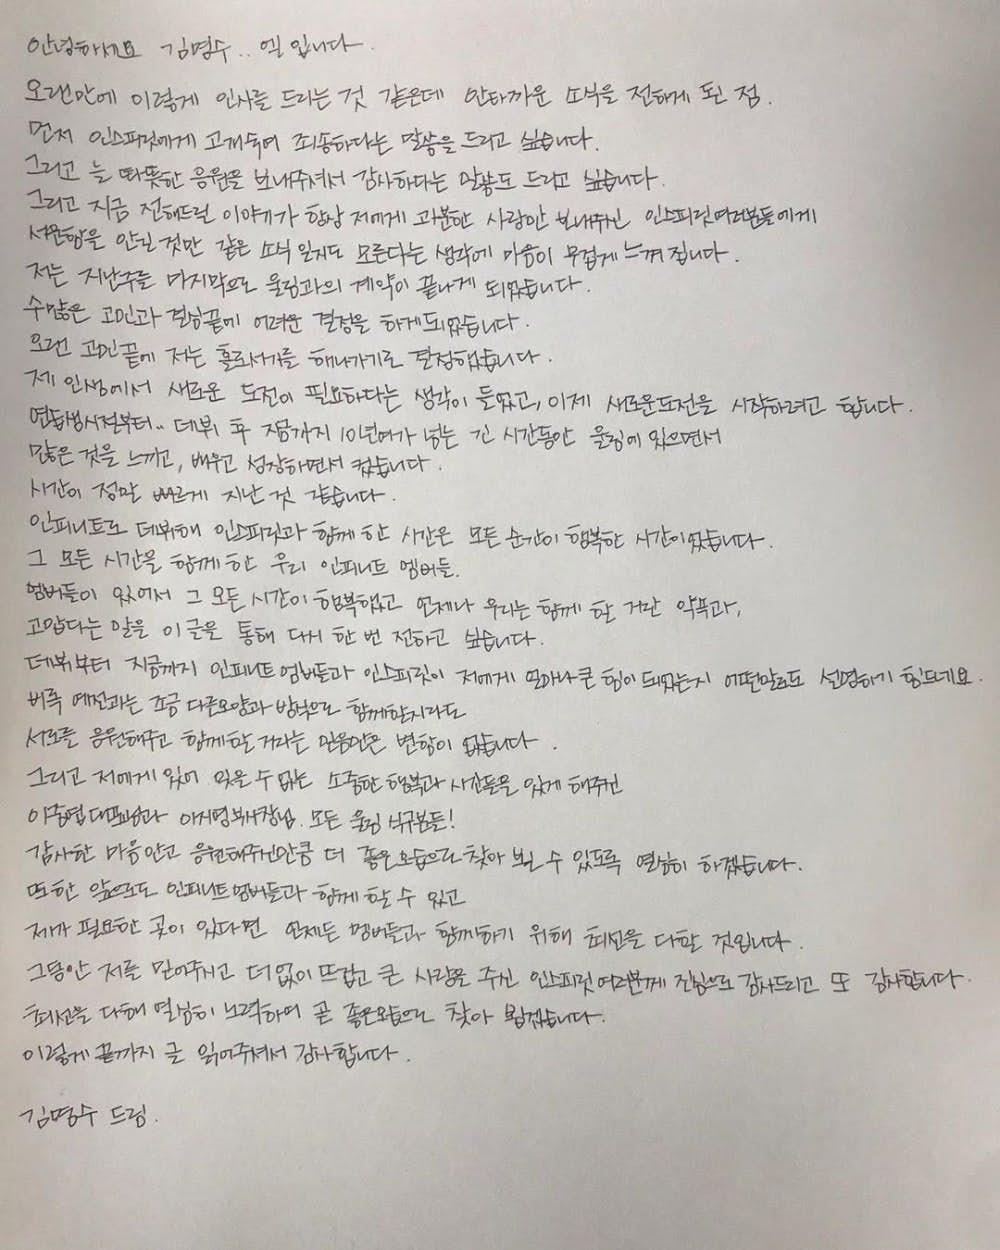 안녕하세요 김명수.. 엘입니다.
오랜만에 이렇게 인사를 드리는 것 같은데 안타까운 소식을 전하게 된 점.
먼저 인스피릿에게 고개숙여 죄송하다는 말씀을 드리고 싶습니다.
그리고 늘 따뜻한 응원을 보내주셔서 감사하다는 말씀도 드리고 싶습니다.
그리고 지금 전해드릴 이야기가 항상 저에게 과분한 사랑만 보내주신 인스피릿여러분들에게
서운함을 안길 것만 같은 소식 일지도 모른다는 생각에 마음이 무겁게 느껴집니다.
저는 지난주를 마지막으로 울림과의 계약이 끝나게 되었습니다.
수많은 고민과 결심끝에 어려운 결정을 하게되었습니다.
오랜 고민끝에 저는 홀로서기를 해나가기로 결정했습니다.
제 인생에서 새로운 도전이 필요하다는 생각이 들었고, 이제 새로운도전을 시작하려고 합니다.
연습생시절부터.. 데뷔 후 지금까지 10년여가 넘는 긴 시간동안 울림에 있으면서
많은 것을 느끼고, 배우고 성장하면서 컸습니다.
시간이 정말 빠르게 지난 것 같습니다.
인피니트로 데뷔해 인스피릿과 함께 한 시간은 모든 순간이 행복한 시간이었습니다.
그 모든 시간을 함께 한 우리 인피니트 멤버들.
멤버들이 있어서 그 모든 시간이 행복했고 언제나 우리는 함께 할 거란 약속과,
고맙다는 말을 이 글을 통해 다시 한 번 전하고 싶습니다.
데뷔부터 지금까지 인피니트 멤버들과 인스피릿이 저에게 얼마나 큰 힘이 되었는지 어떤말로도 설명하기 힘드네요.
비록 예전과는 조금 다른모양과 방식으로 함께할지라도
서로를 응원해주고 함께할 거라는 믿음만은 변함이 없습니다.
그리고 저에게 있어 잊을 수 없는 소중한 행복과 시간들을 있게 해주신
이중엽대표님과 이지영부사장님. 모든 울림 식구분들!
감사한 마음안고 응원해주신만큼 더 좋은모습으로 찾아 뵐 수 있도록 열심히 하겠습니다.
또한 앞으로도 인피니트멤버들과 함께 할 수 있고
제가 필요한 곳이 있다면 언제든 멤버들과 함께하기 위해 최선을 다할 것입니다.
그동안 저를 믿어주시고 더없이 뜨겁고 큰 사랑을 주신 인스피릿 여러분께 진심으로 감사드리고 또 감사합니다.
최선을 다해 열심히 노력하여 곧 좋은모습으로 찾아 뵙겠습니다.
이렇게 끝까지 글 읽어주셔서 감사합니다.
김명수 드림.